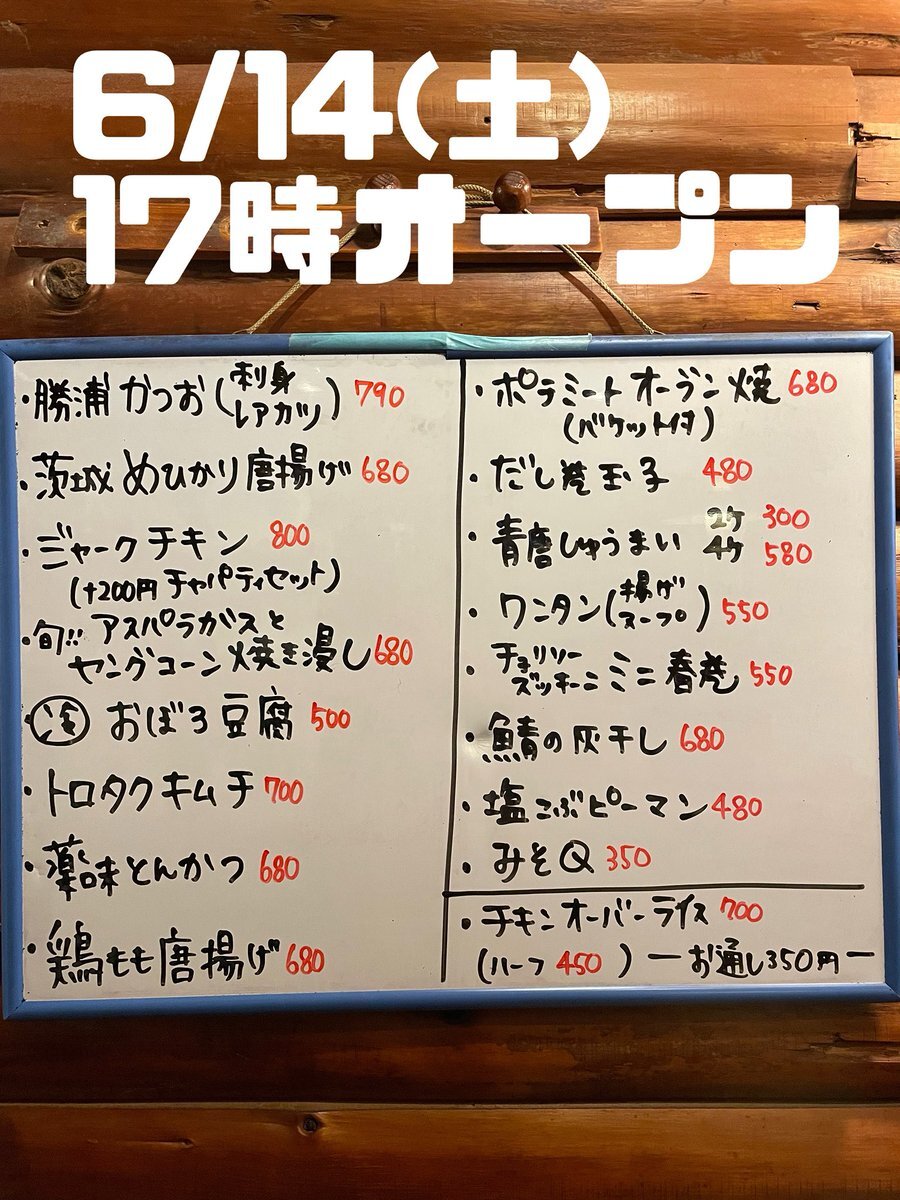 6/14(土)
17時オープン
・勝浦 かつお(刺身 レアカツ) 790
・茨城 めひかり唐揚げ 680
・ジャークチキン 800
(+200円 チャパティセット)
・旬!! アスパラガスと
ヤングコーン焼き浸し 680
・冷 おぼろ豆腐 500
・トロタクキムチ 700
・薬味とんかつ 680
・鶏もも唐揚げ 680
・ポテミートオーブン焼 680
(バケット付)
・だし巻玉子 480
・青唐しゅうまい 2ケ 300
4ケ 580
・ワンタン(揚げ スープ) 550
・チョリソー ズッキーニ ミニ春巻 550
・鯖の灰干し 680
・塩こぶピーマン 480
・みそQ 350
・チキンオーバーライス 700
(ハーフ 450) ーお通し350円ー